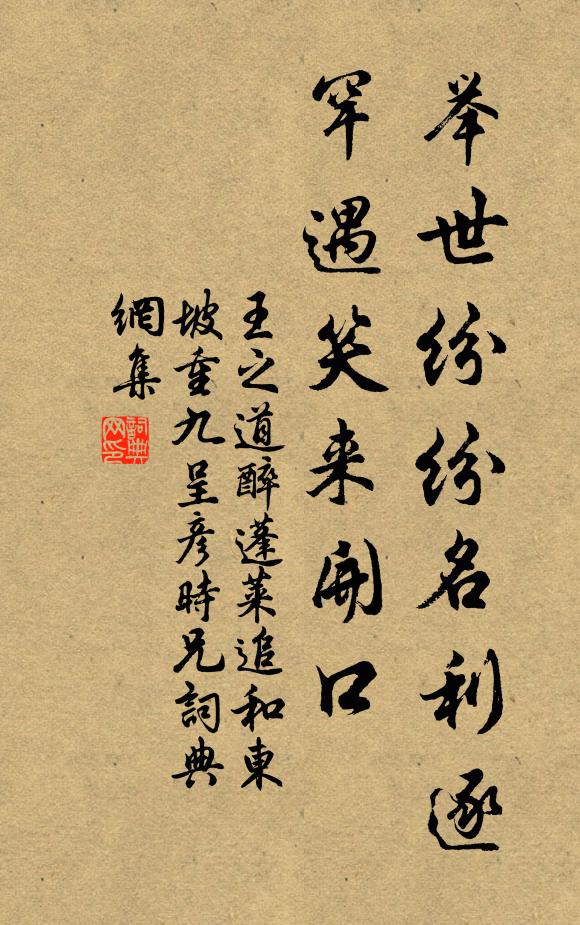 举世纷纷名利逐
罕遇笑来开口
王之道醉蓬莱追和東
坡重九呈彦時兄詞典
網集
詞典网印